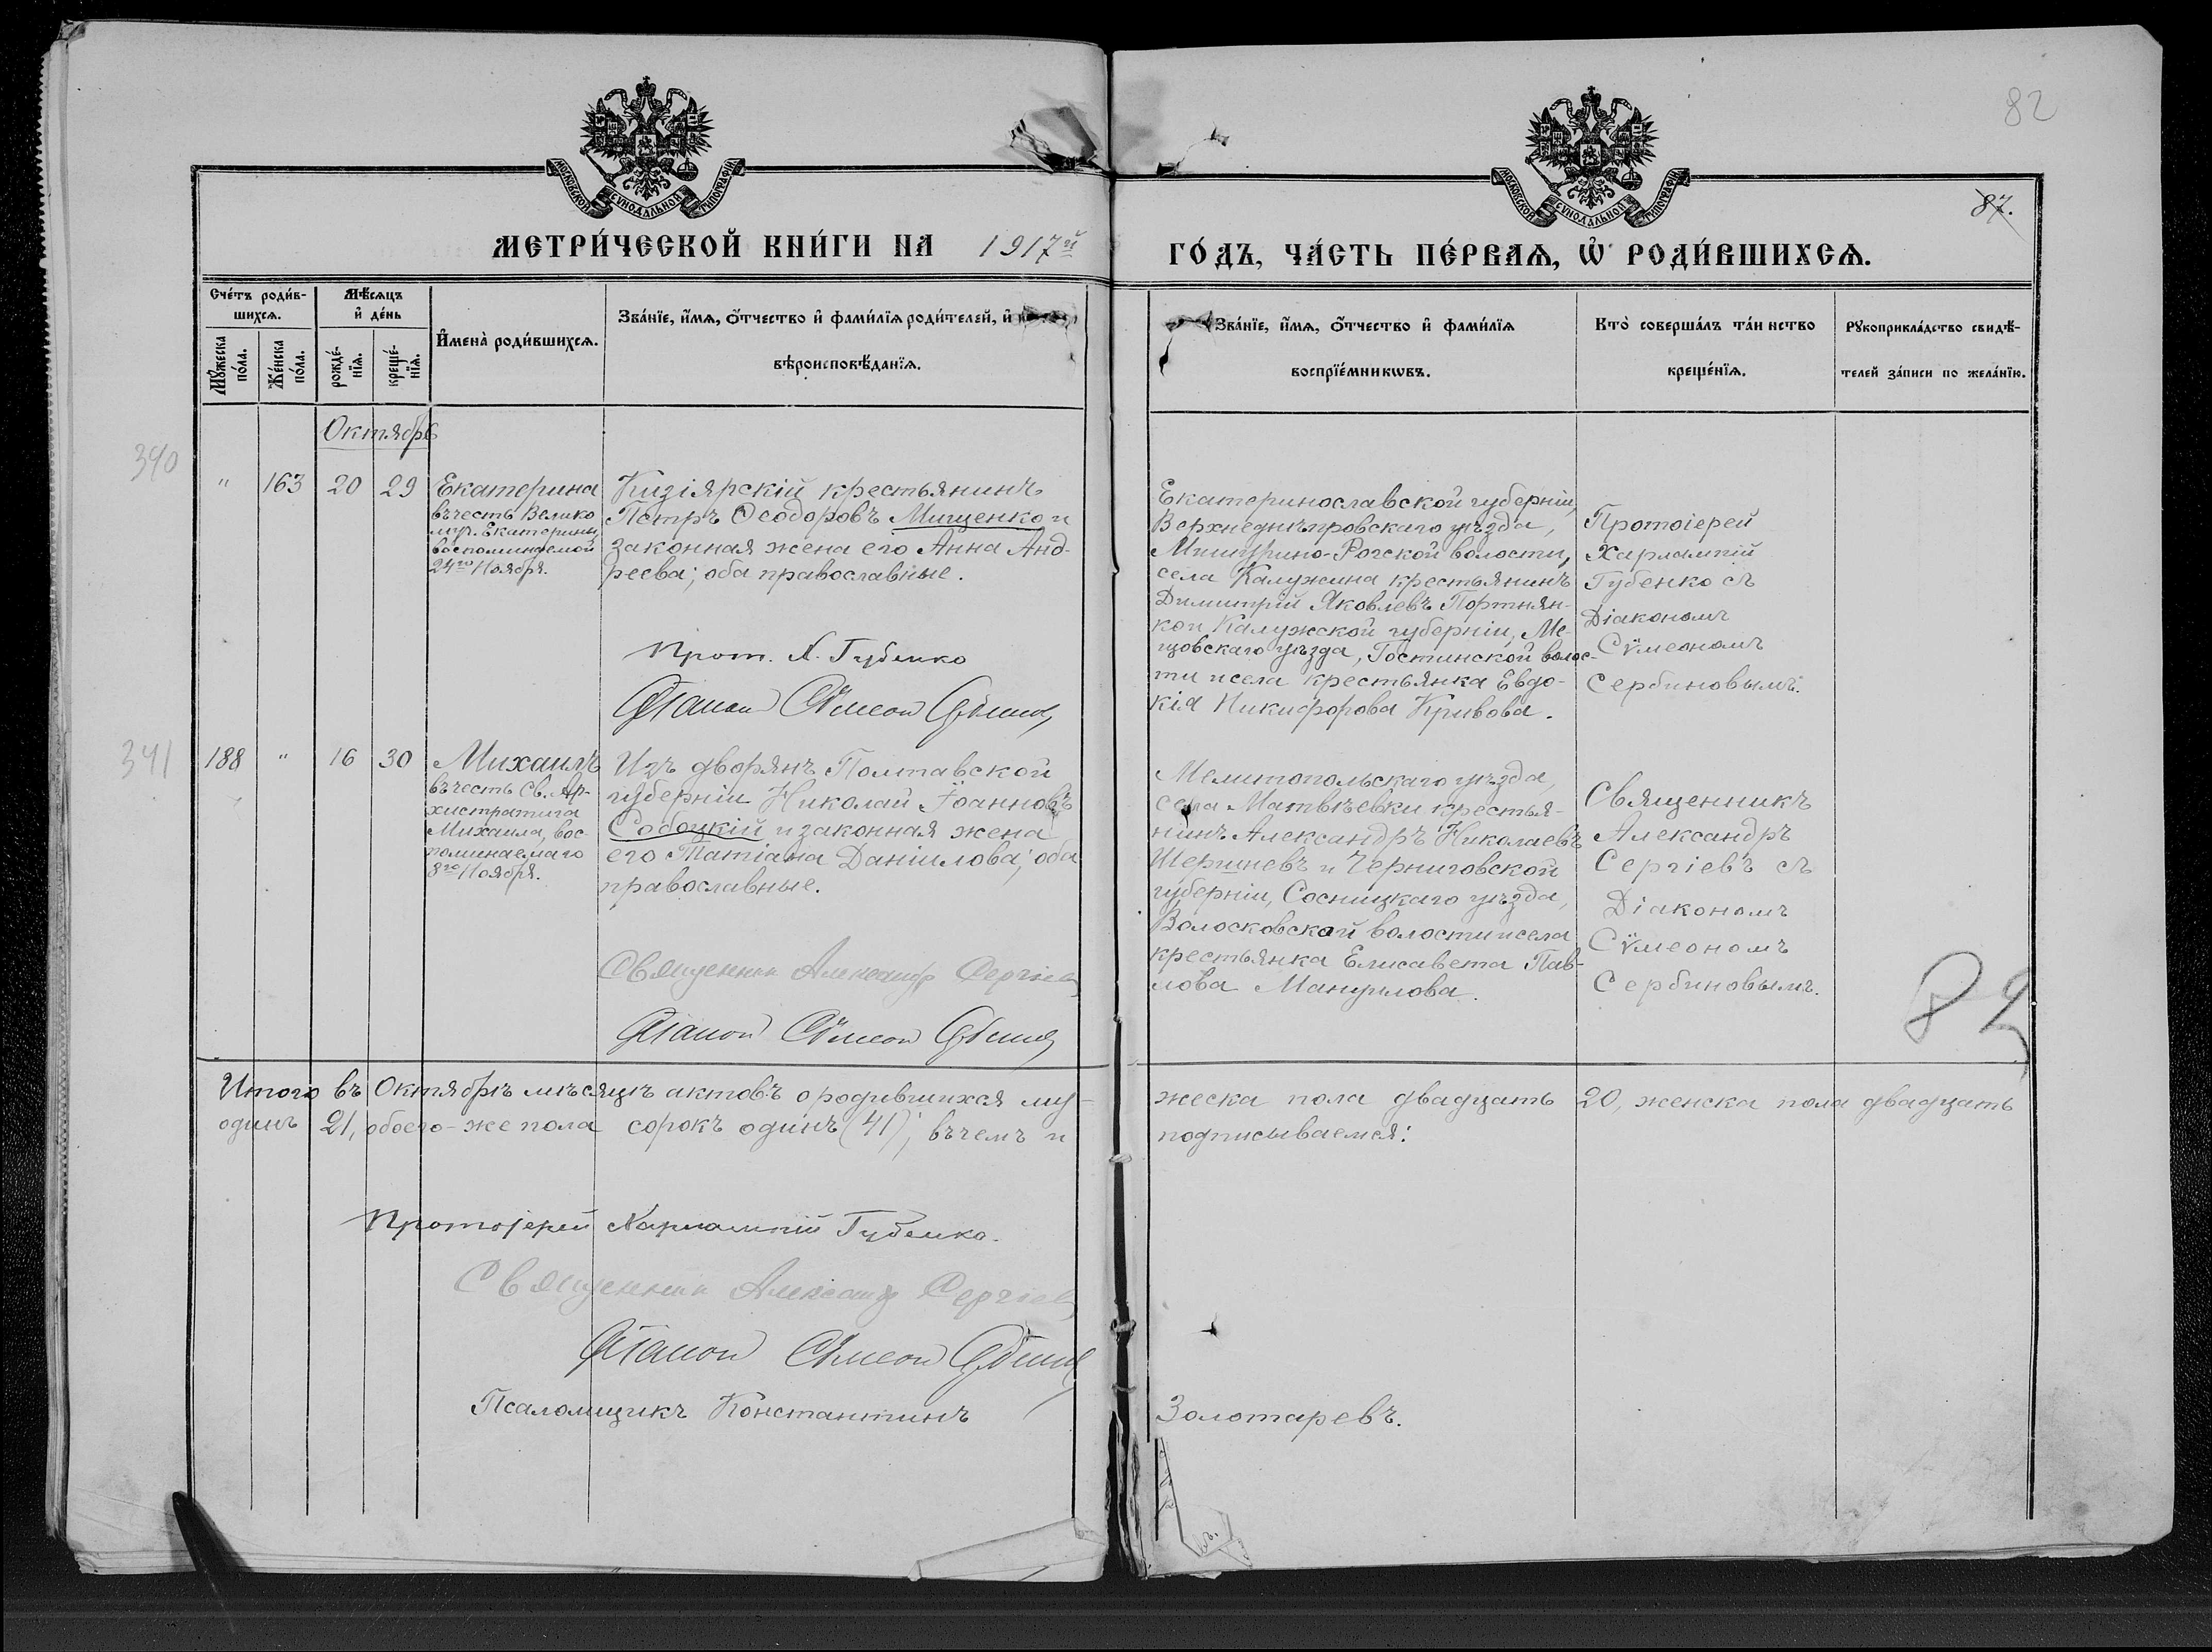 82
87.
МОСКОВСКОЙ СѴНОДАЛЬНОЙ ТИПОГРАФІИ
МОСКОВСКОЙ СѴНОДАЛЬНОЙ ТИПОГРАФІИ
МЕТРИ́ЧЕСКОЙ КНИ́ГИ НА 1917й ГО́ДЪ, ЧА́СТЬ ПЕ́РВАѦ, Ѡ҆ РОДИ́ВШИХСѦ.
Сче́тъ роди́в-
шихсѧ.
Мѣ́сѧцъ
и҆ де́нь
Мꙋ́жеска
по́ла.
Же́нска
по́ла.
рожде́-
нїѧ.
креще́-
нїѧ.
И҆мена̀ роди́вшихсѧ.
Зва́нїе, и҆́мѧ, ѻ҆́тчество и҆ фами́лїѧ роди́телей, и҆
вѣроисповѣ́данїѧ.
Зва́нїе, и҆́мѧ, ѻ҆́тчество и҆ фами́лїѧ
воспрїе́мникѡвъ.
Кто̀ соверша́лъ та́инство
креще́нїѧ.
Рꙋкоприкла́дство свидѣ́-
телей за́писи по жела́нїю.
Октябрь
340
" 163 20 29
Екатерина
въ честь Велико
мр. Екатерины
воспоминаемой
24го Ноября.
Кизіярскій крестьянинъ
Петръ Ѳеодоровъ Мищенко и
законная жена его Анна Анд-
реева; оба православные.
Прот. Х. Губенко
Діаконъ Сѵмеон
Екатеринославской губерніи,
Верхнеднѣпровскаго уѣзда,
Мишурино-Рогской волости,
села Калужина крестьянинъ
Димитрій Яковлевъ Портнян-
ко и Калужской губерніи, Ме-
щовскаго уѣзда, Гостинской волос-
ти и села крестьянка Евдо-
кія Никифорова Кривова.
Протоіерей
Харлампій
Губенко съ
Діакономъ
Сѵмеономъ
Сербиновымъ.
341
188 " 16 30
Михаилъ
въ честь Св. Ар-
хистратига
Михаила, вос-
поминаемаго
8го Ноября.
Изъ дворянъ Полтавской
губерніи Николай Іоанновъ
Собоцкій и законная жена
его Татіана Даніилова; оба
православные.
Священник Александр Сергіев
Діаконъ Сѵмеон
Мелитопольскаго уѣзда,
села Матвѣевки крестья-
нинъ Александръ Николаевъ
Шершневъ и Черниговской
губерніи, Сосницкаго уѣзда,
Волосковской волости и села
крестьянка Елисавета Пав-
лова Мануилова.
Священникъ
Александръ
Сергіевъ съ
Діакономъ
Сѵмеономъ
Сербиновымъ.
82
Итого въ Октябрѣ мѣсяцѣ актовъ о родившихся му-
жеска пола двадцать 20, женска пола двадцать
одинъ 21, обоего-же пола сорокъ одинъ (41), въ чемъ и
подписываемся:
Протоіерей Харлампій Губенко.
Священник Александр Сергіев
Діаконъ Сѵмеон
Псаломщикъ Константинъ Золотаревъ.